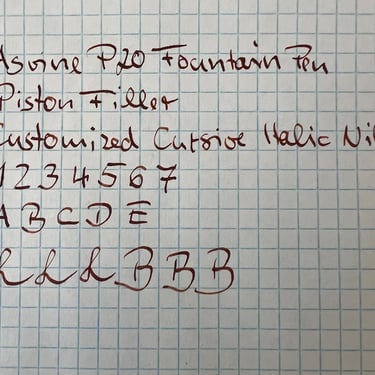 Asvine P20 Fountain Pen
Piston Filler
Customized Cursive Italic Nib
1 2 3 4 5 6 7
A B C D E
L L L B B B